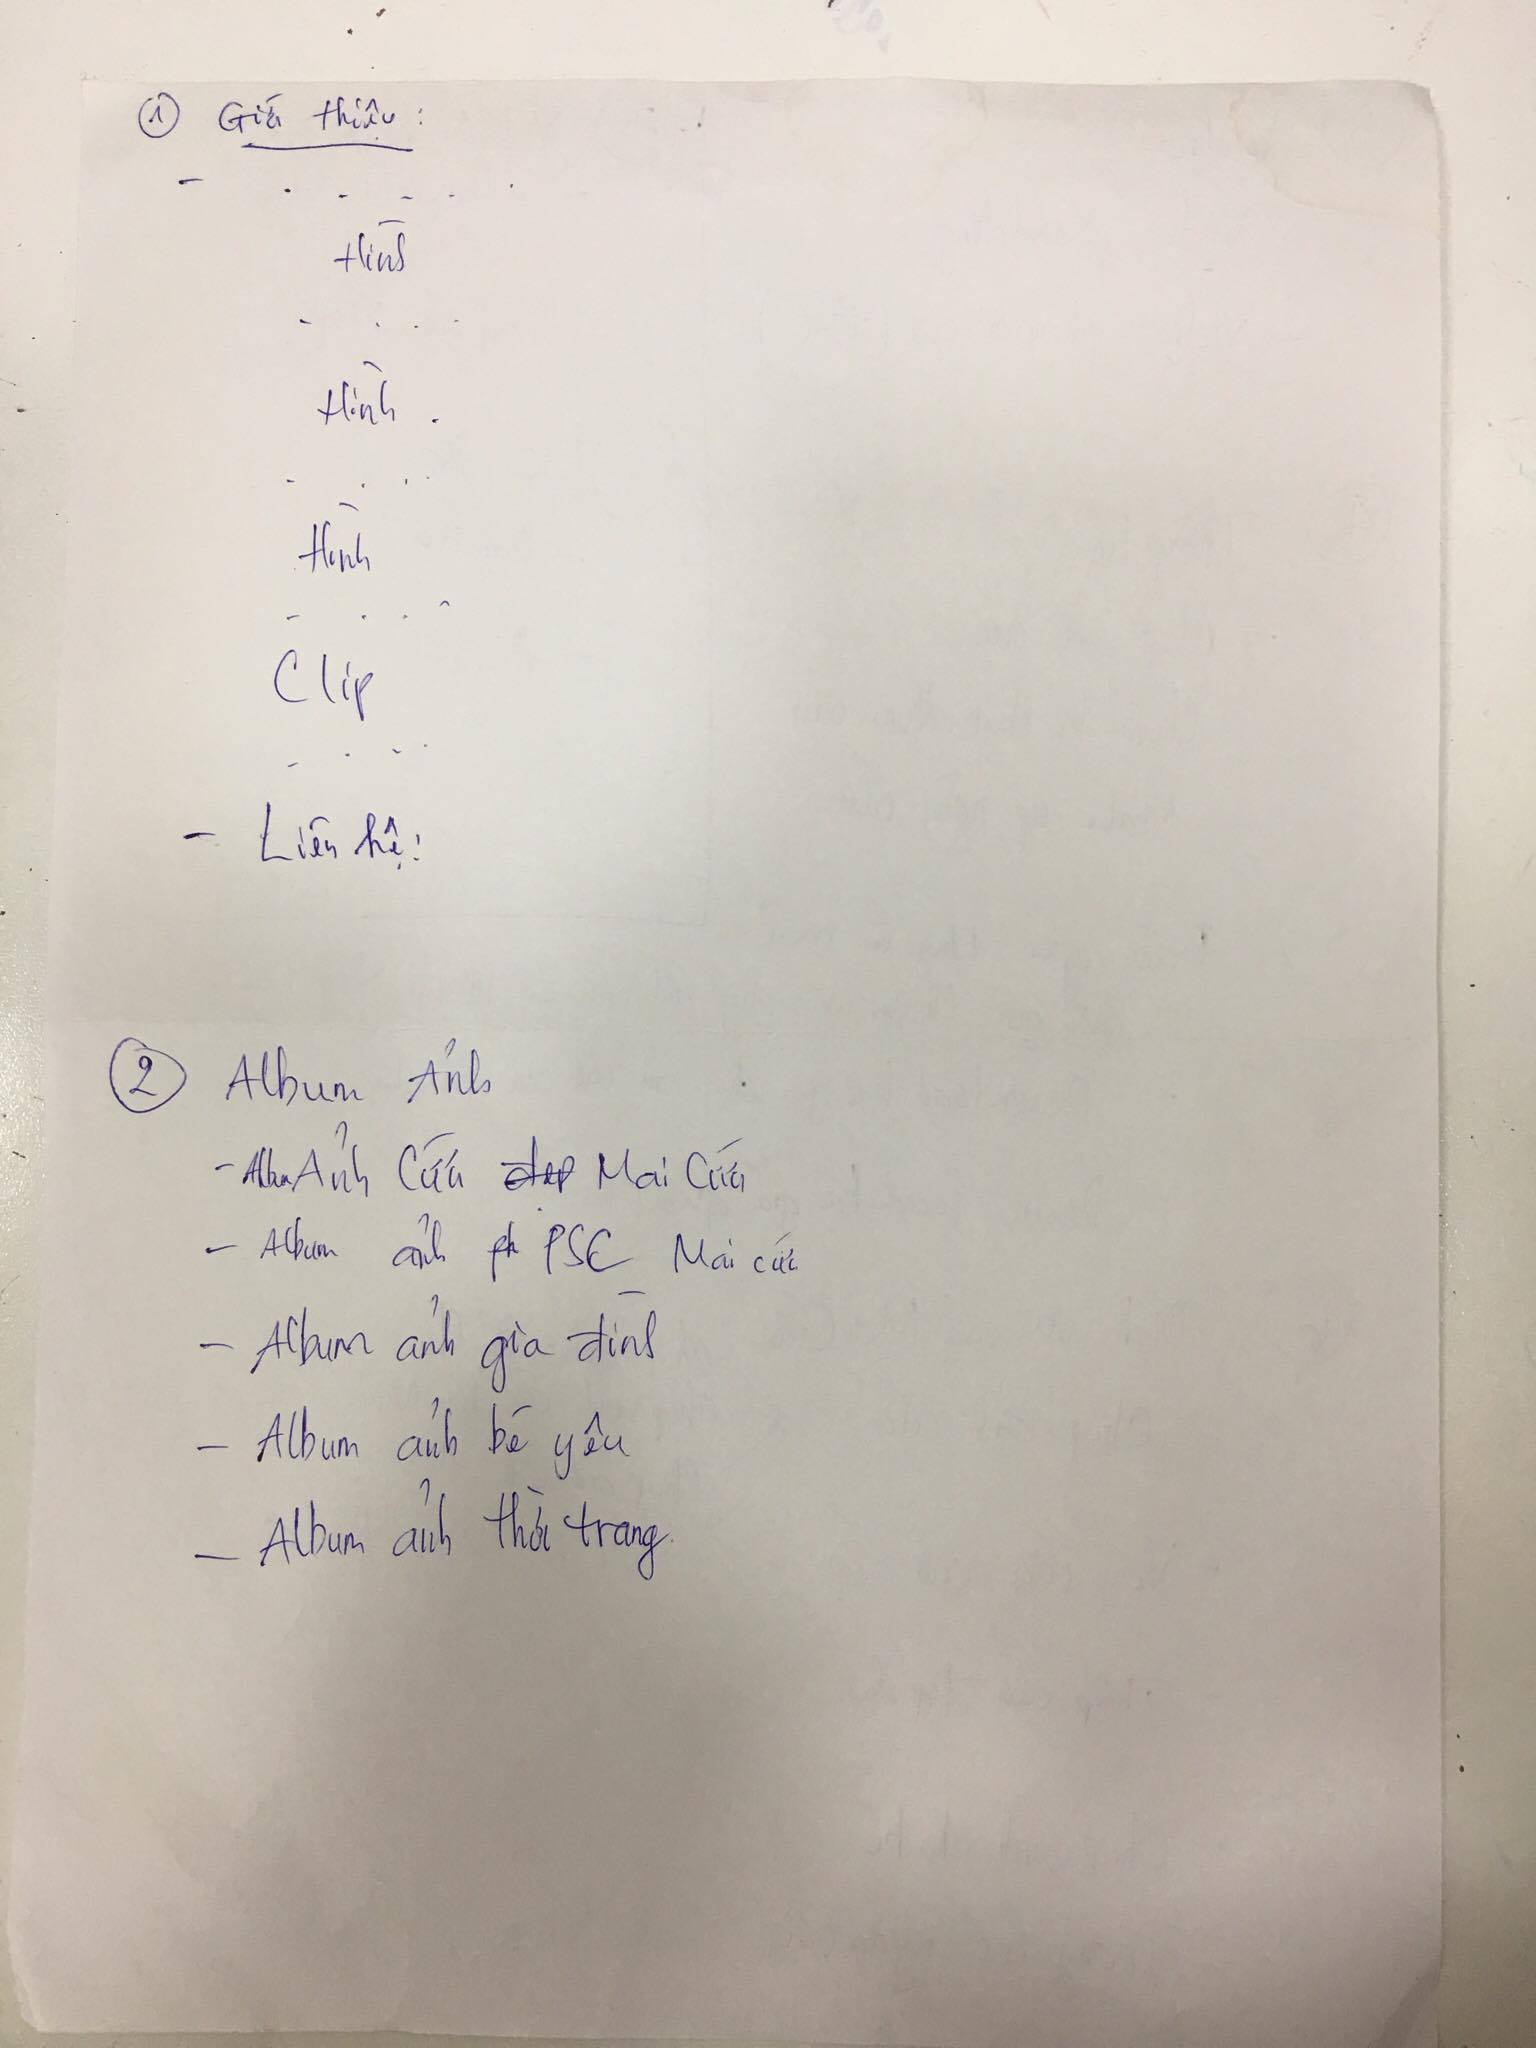 ① Giới thiệu:
- . . . . .
Hình
- . . .
Hình .
- . . .
Hình
- . . .
Clip
- . . .
- Liên hệ:
② Album Ảnh
- Album Ảnh Cưới Mai Cưới
- Album ảnh PSC Mai cưới
- Album ảnh gia đình
- Album ảnh bé yêu
- Album ảnh thời trang